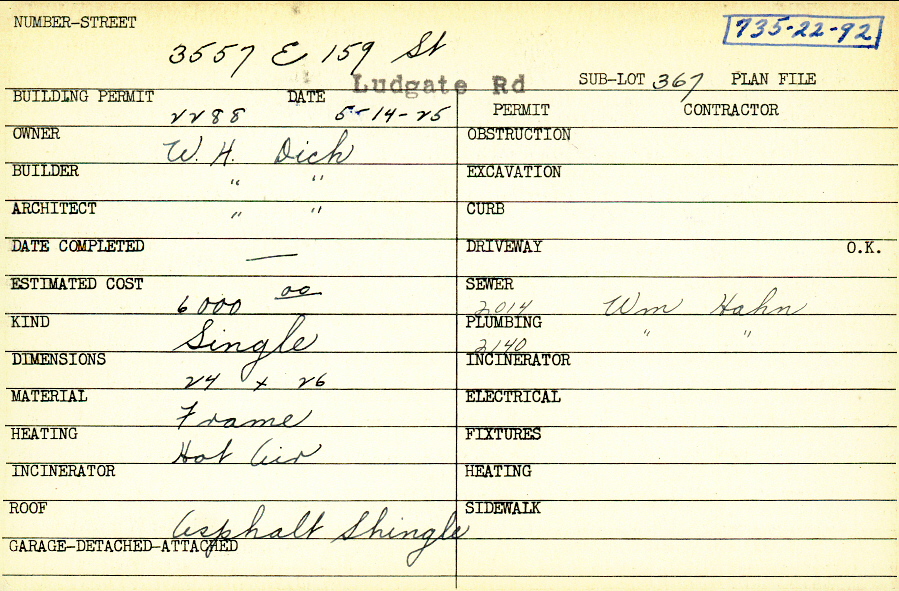 NUMBER-STREET
735-22-92
3557 E 159 St
Ludgate Rd
SUB-LOT 367 PLAN FILE
BUILDING PERMIT 2288 DATE 5-14-25
PERMIT CONTRACTOR
OWNER W. H. Dich
OBSTRUCTION
BUILDER " "
EXCAVATION
ARCHITECT " "
CURB
DATE COMPLETED —
DRIVEWAY O.K.
ESTIMATED COST 6000 00
SEWER 2014 Wm Hahn
KIND Single
PLUMBING 2140 " "
DIMENSIONS 24 x 26
INCINERATOR
MATERIAL Frame
ELECTRICAL
HEATING Hot Air
FIXTURES
INCINERATOR
HEATING
ROOF Asphalt Shingle
SIDEWALK
GARAGE-DETACHED-ATTACHED